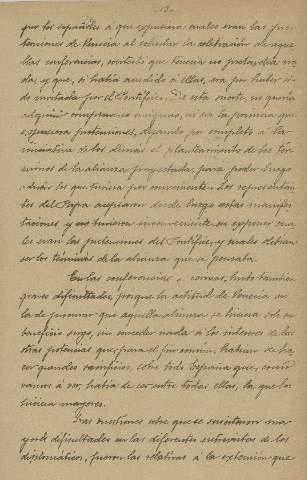 por los españoles á que expusiera cuales eran las pre-
tensiones de Venecia al solicitar la celebración de aque-
llas conferencias, contestó que Venecia no pretendía na-
da y que, si había acudido á ellas, era por haber si-
do invitada por el Pontífice. De esta suerte, no quería
adquirir compromiso ninguno, ni ser la primera que
expusiera pretensiones, dejando por completo á la
iniciativa de los demás el planteamiento de los tér-
minos de la alianza proyectada, para poder luego
admitir los que tuviera por conveniente. Los representan-
tes del Papa aceptaron desde luego estas manifes-
taciones y no tuvieron inconveniente en exponer cua-
les eran las pretensiones del Pontífice, y cuales debían
ser los términos de la alianza que se pensaba.
En las conferencias hubo también
graves dificultades, porque la actitud de Venecia era
la de procurar que aquella alianza se hiciera solo en
beneficio suyo, sin conceder nada á los intereses de las
otras potencias que, para el fin común, habían de ha-
cer grandes sacrificios, sobre todo España que, como
vamos á ver, había de ser entre todas ellas, la que los
hiciera mayores.
Las cuestiones sobre que se suscitaron ma-
yores dificultades en las diferentes entrevistas de los
diplomáticos, fueron las relativas á la extensión que